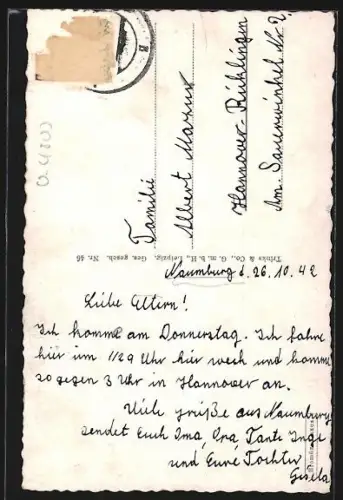 Familie
Albert Mazur
Hannover-Ricklingen
Am Sauerwinkel Nr. 2
Trinks & Co., G. m. b. H., Leipzig. Ges. gesch. Nr. 46
Naumburg d. 26.10.42
Liebe Eltern!
Ich komme am Donnerstag. Ich fahre
hier um 1/29 Uhr hier wech und komme
so gegen 3 Uhr in Hannover an.
Viele Grüße aus Naumburg
sendet Euch Oma, Opa, Tante Inge
und Eure Tochter
Gisela